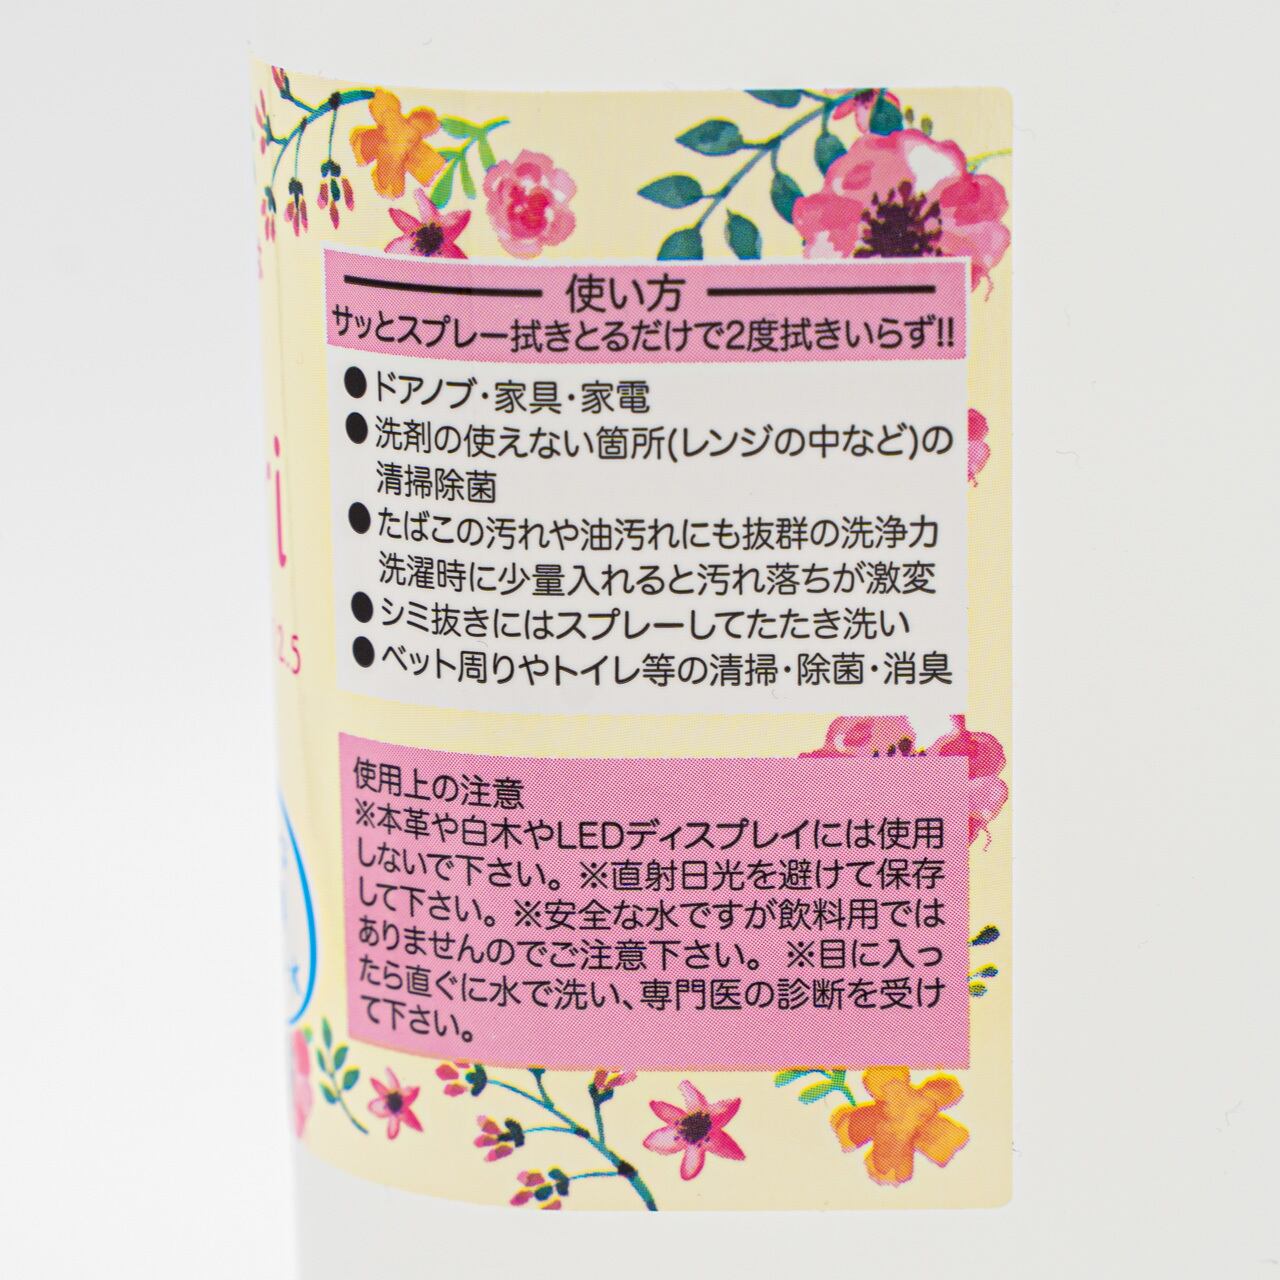 使い方
サッとスプレー拭きとるだけで2度拭きいらず!!
●ドアノブ・家具・家電
●洗剤の使えない箇所(レンジの中など)の
清掃除菌
●たばこの汚れや油汚れにも抜群の洗浄力
洗濯時に少量入れると汚れ落ちが激変
●シミ抜きにはスプレーしてたたき洗い
●ベット周りやトイレ等の清掃・除菌・消臭
使用上の注意
※本革や白木やLEDディスプレイには使用
しないで下さい。※直射日光を避けて保存
して下さい。※安全な水ですが飲料用では
ありませんのでご注意下さい。 ※目に入っ
たら直ぐに水で洗い、専門医の診断を受け
て下さい。
2.5